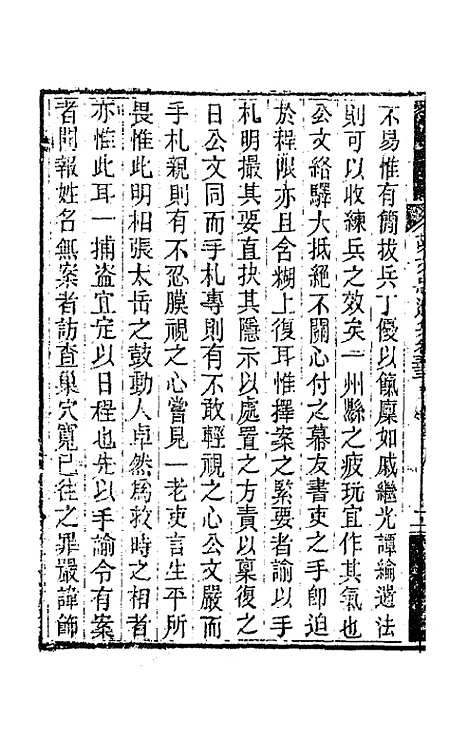 不易惟有簡拔兵丁優以餼廩如戚繼光譚綸遺法
則可以收練兵之效矣一州縣之疲玩宜作其氣也
公文絡驛大抵絕不關心付之幕友書吏之手卽迫
於程限亦且含糊上復耳惟擇案之緊要者諭以手
札明撮其要直抉其隱示以處置之方責以稟復之
日公文同而手札專則有不敢輕視之心公文嚴而
手札親則有不忍膜視之心嘗見一老吏言生平所
畏惟此明相張太岳之鼓動人卓然爲救時之相者
亦惟此耳一捕盜宜定以日程也先以手諭令有案
者開報姓名無案者訪查巢穴寬已往之罪嚴諱飾